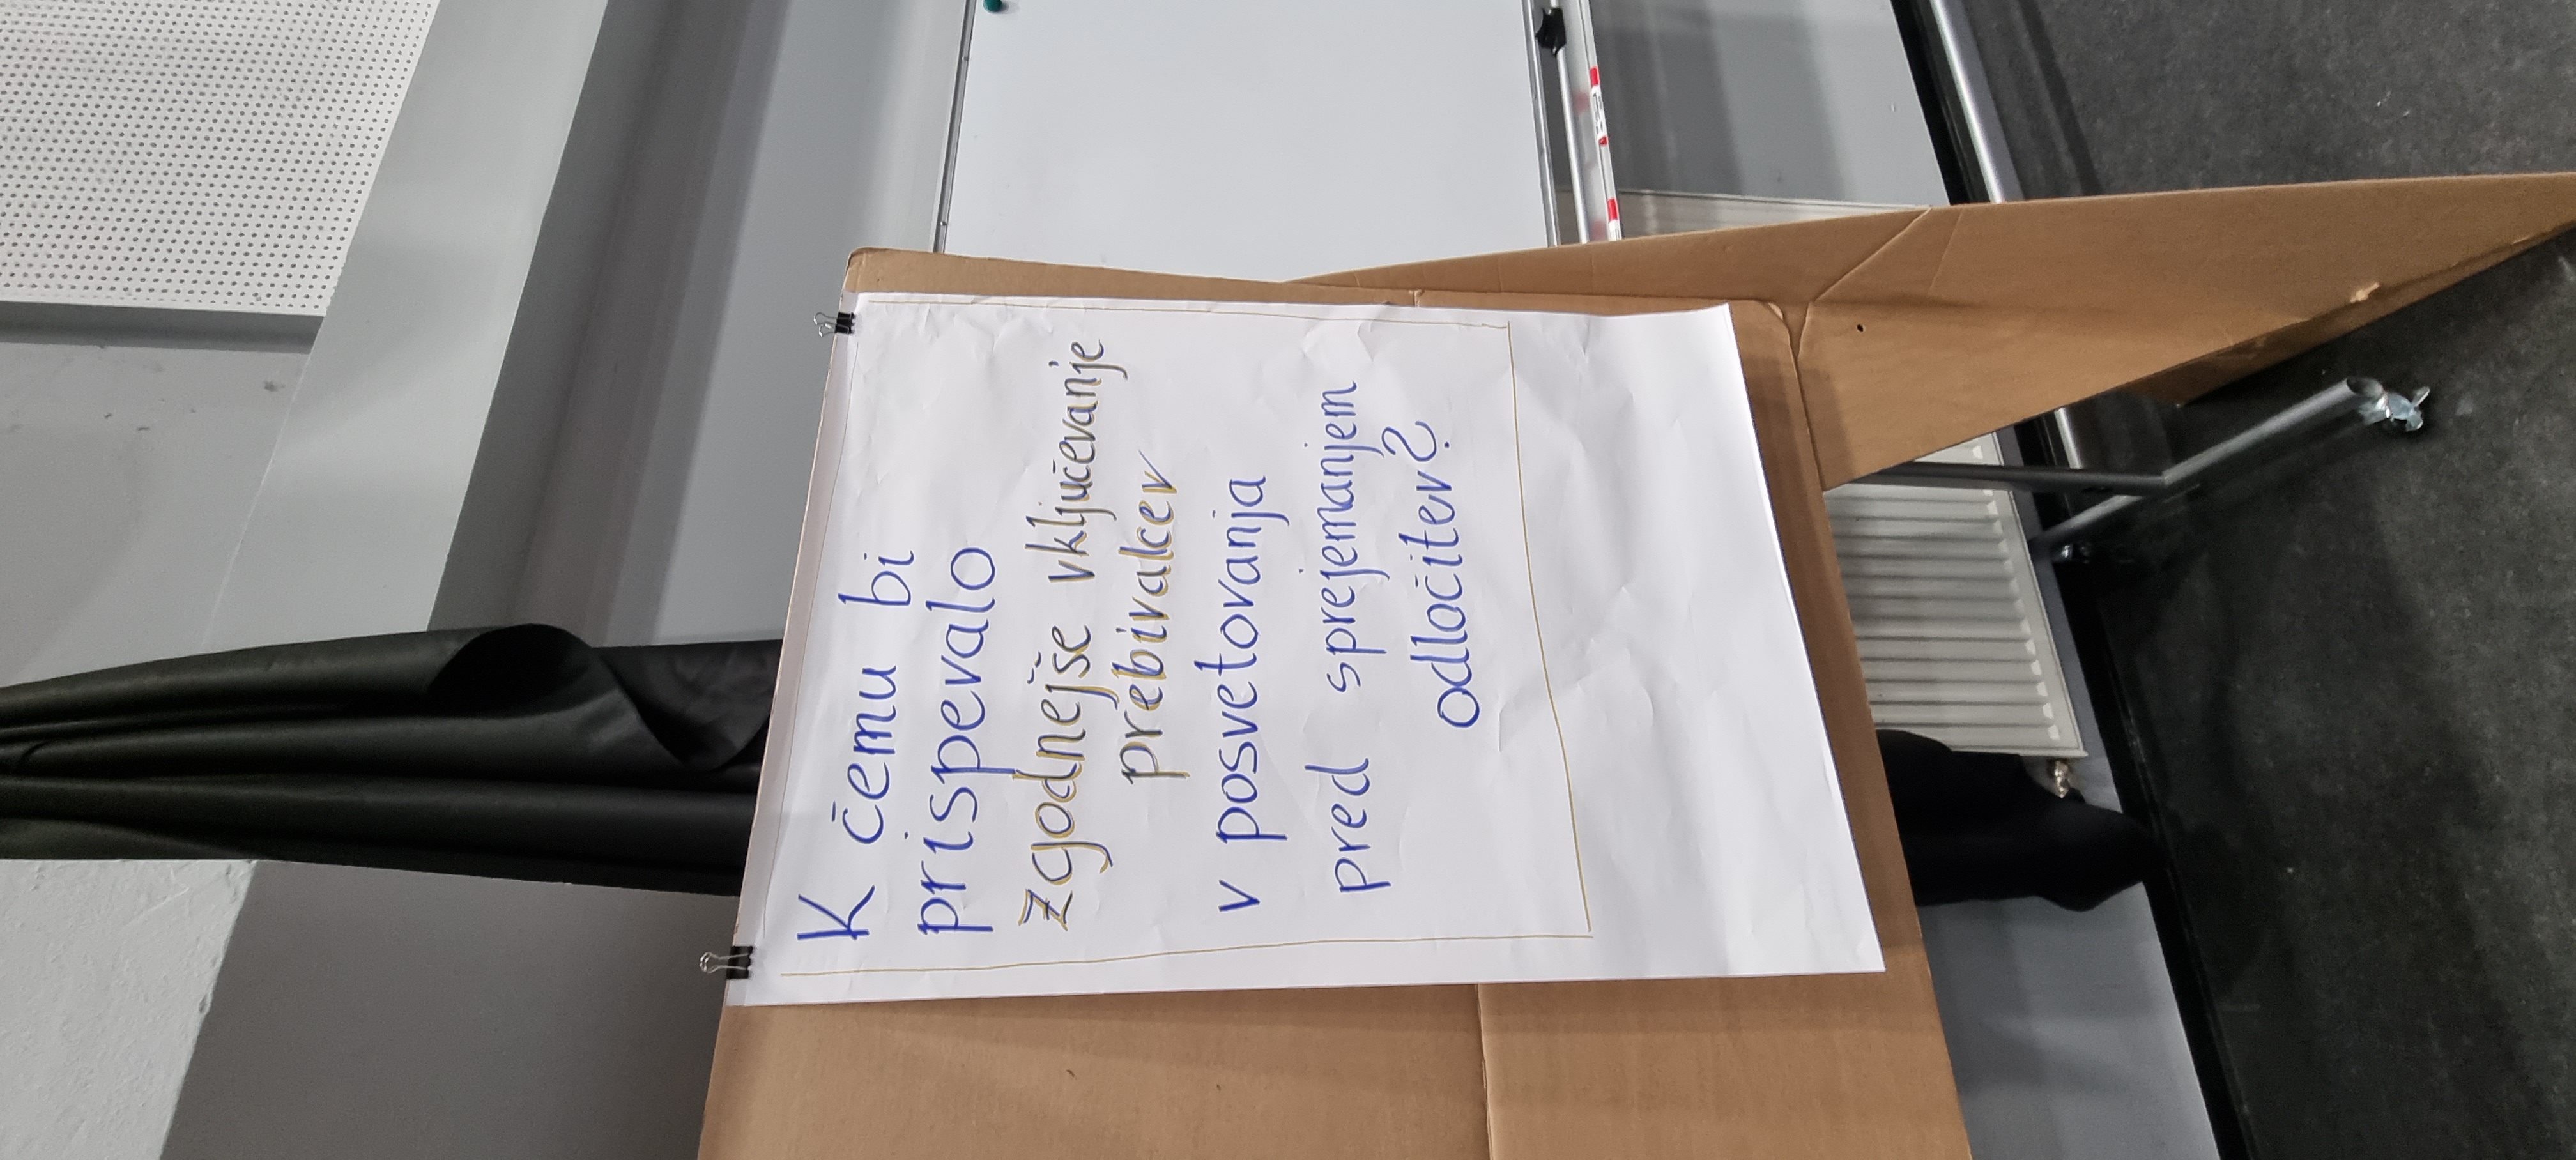 K čemu bi
prispevalo
zgodnejše vključevanje
prebivalcev
v posvetovanja
pred sprejemanjem
odločitev?